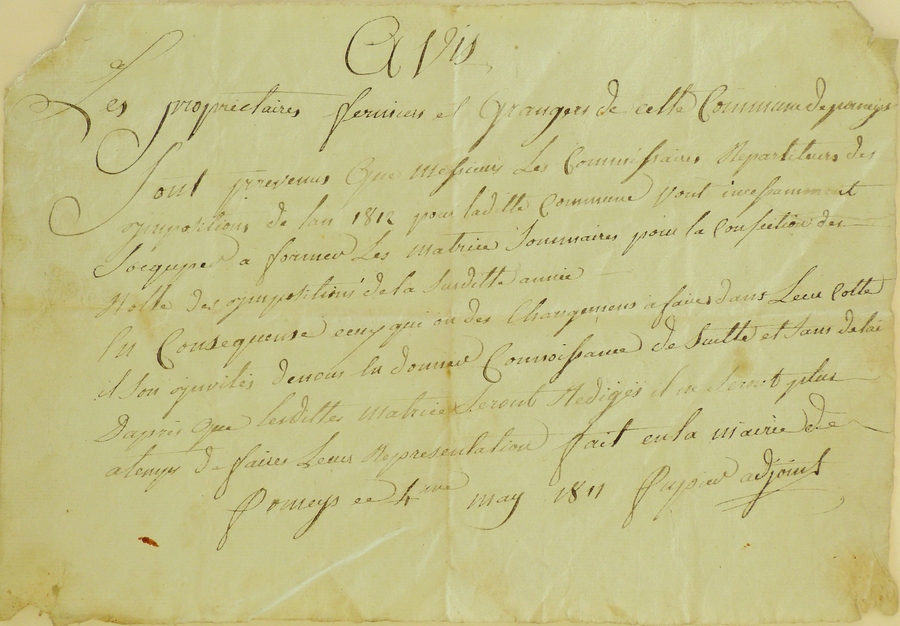 Avis
Les proprietaires fermiers et Grangers de cette Commune de pomeys
Sont prevenus Que messieurs Les Commissaires Repartiteurs des
impositions de lan 1812 pour laditte Commune vont incessamment
Soccuper a former Les matrice Sommaires pour la Confection des
Rolle des impositions de la Susditte année
En Consequense ceux qui on des Changemens a faire dans Leur Cotte
il Son invités de nous en donner Connoissance de Suitte et Sans delai
Daprès Que lesdittes matrice Seront Redigés il ne Serost plus
a temps de faires Leurs Representation fait en la mairie de
Pomeys ce 4 may 1811 adjoint